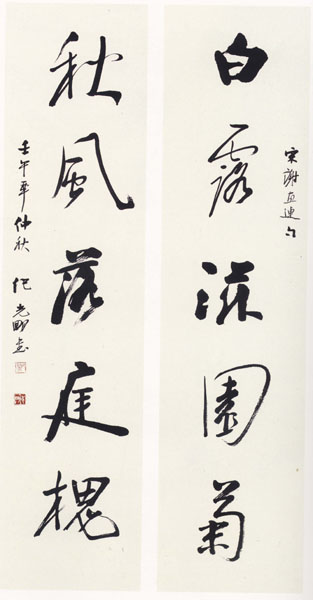 白露滋園菊
宋謝惠連句
秋風落庭槐
壬午年仲秋 紀光明書